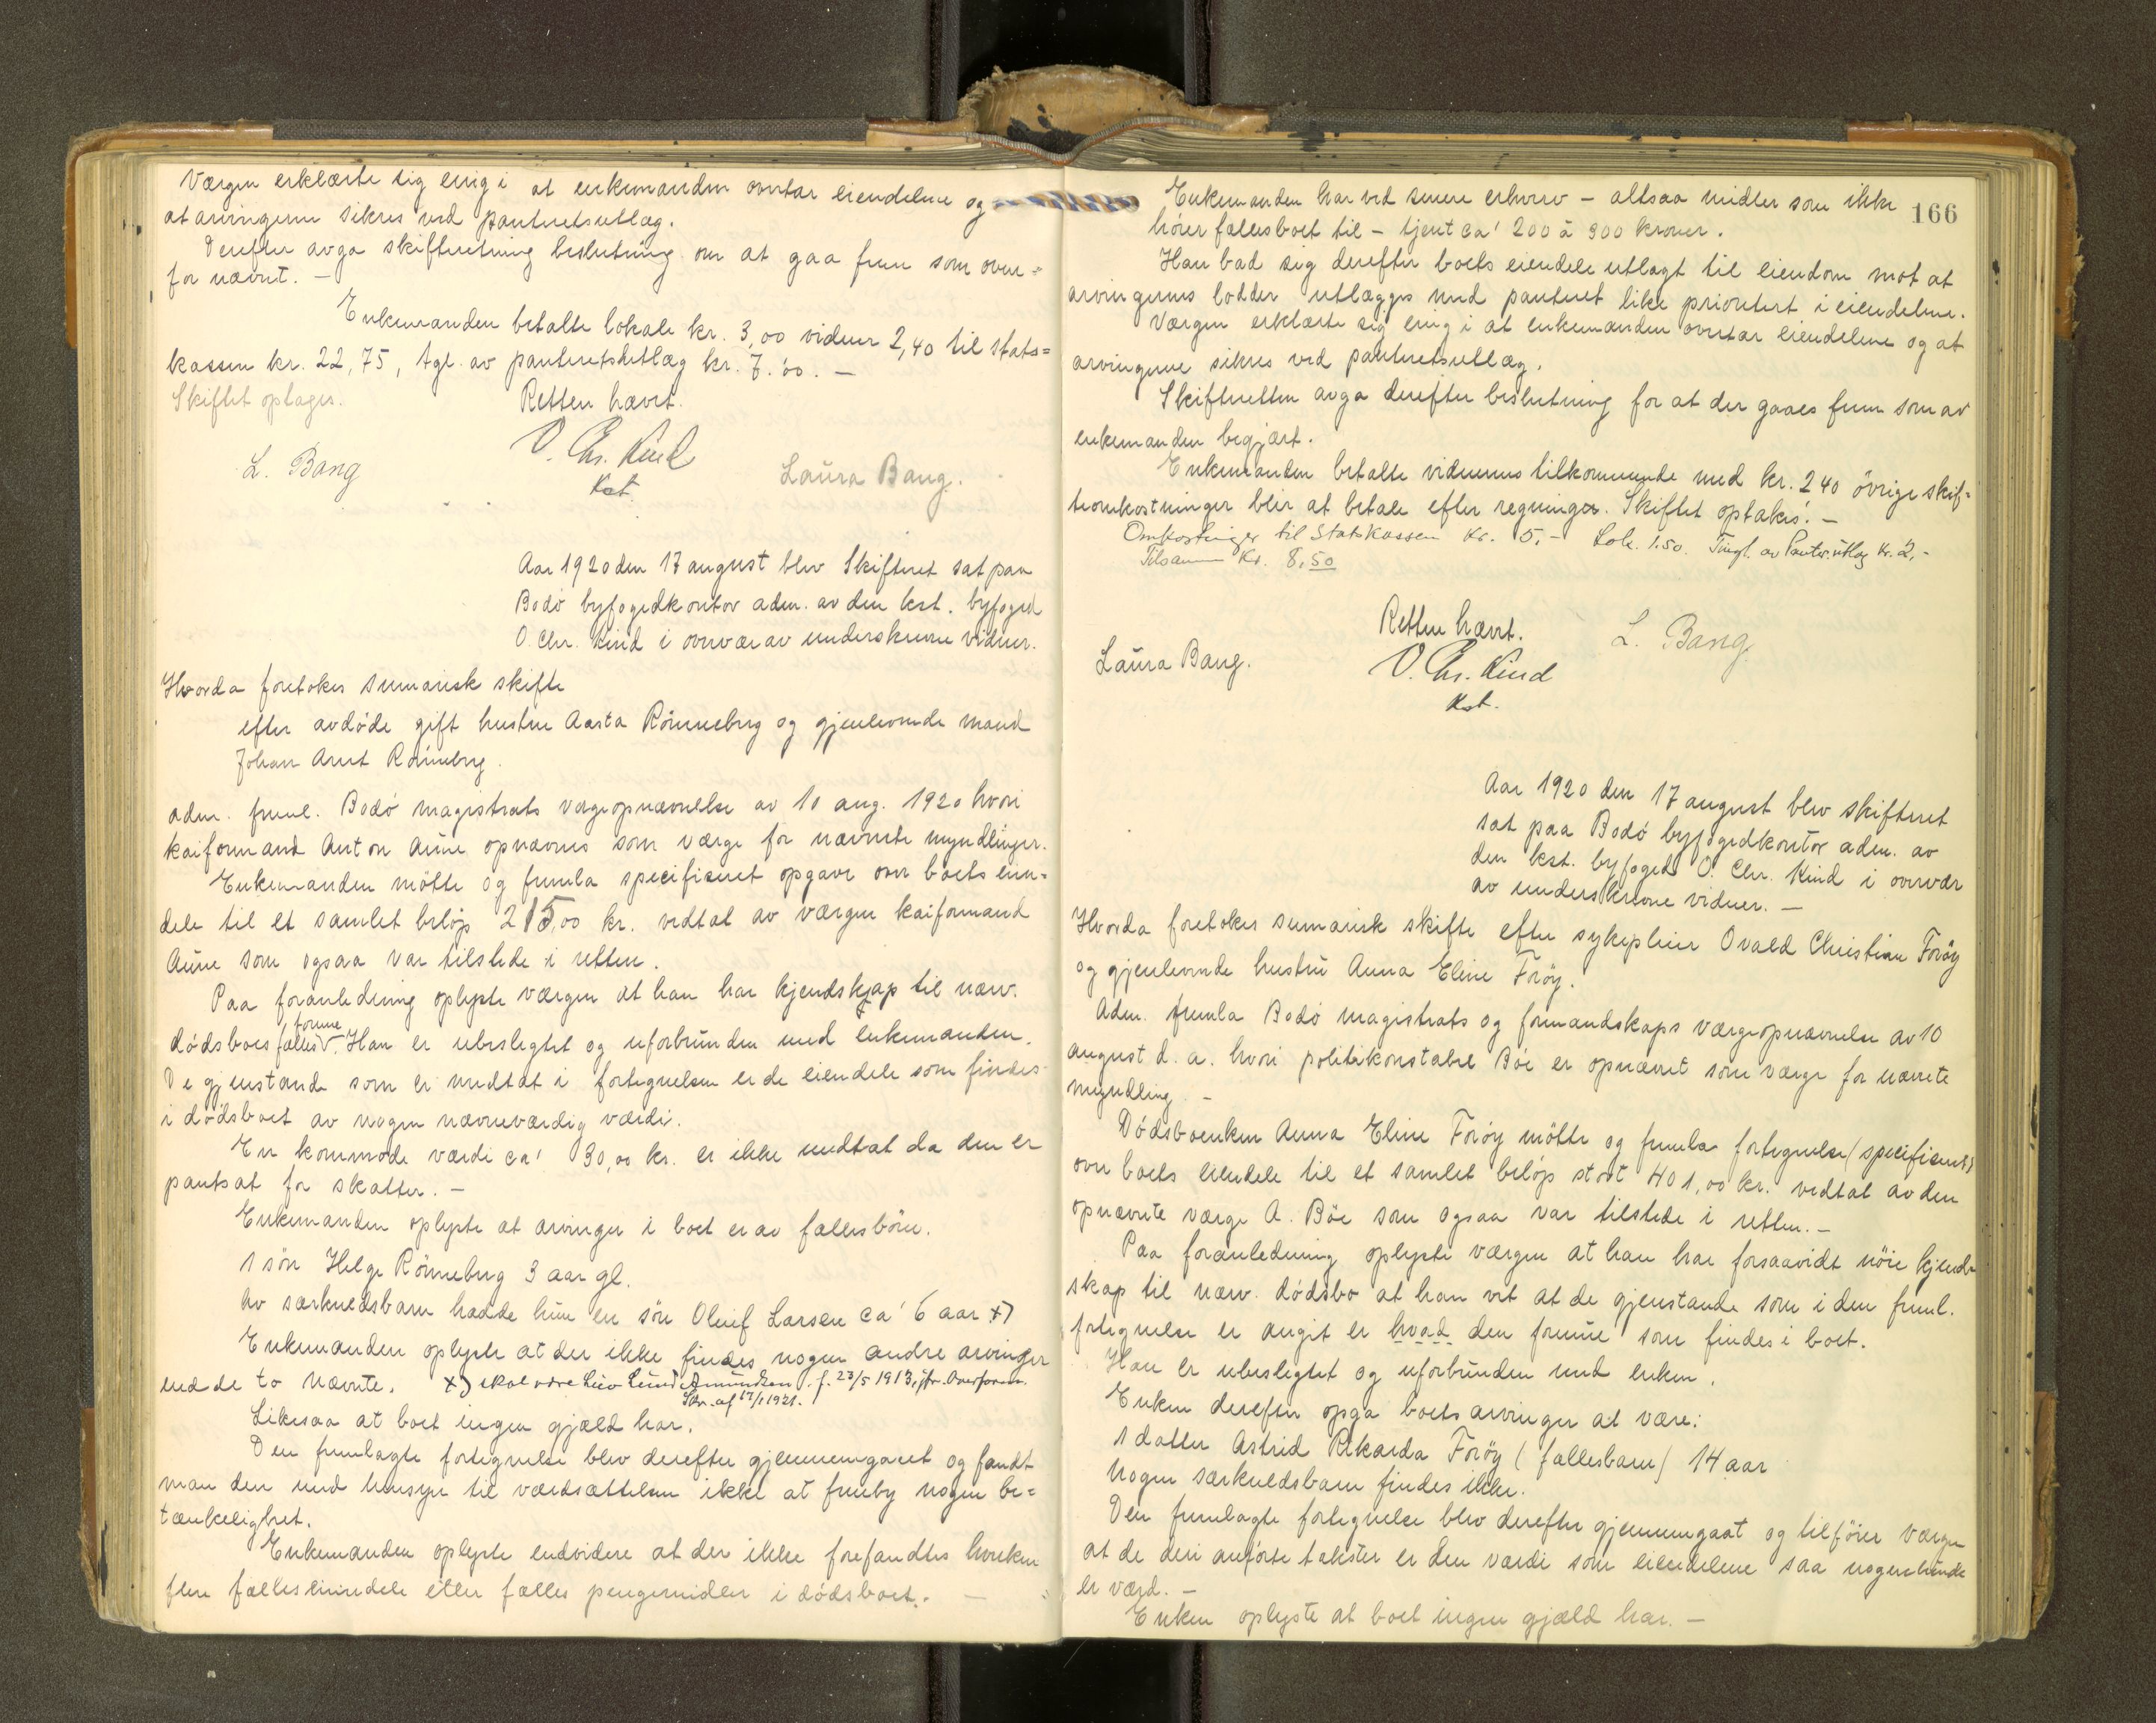 Værgen erklærte sig enig i at enkemanden overtar eiendelene og
at arvingerne sikres ved panteretsutlæg.
Derefter avga skifteretning beslutning om at gaa frem som oven=
for nævnt. –
Enkemanden betalte lokale kr. 3,00 vidner 2,40 til stats=
kassen kr. 22,75, tgl. av panteretsutlæg kr. 7.00. –
Skiftet optages.
Retten hævet.
O. Chr. Kind
Kst.
L. Bang
Laura Bang.
Aar 1920 den 17 august blev Skifteret sat paa
Bodø byfogedkontor adm. av den kst. byfoged
O. Chr. Kind i overvær av underskrevne vidner.
Hvorda foretokes summarisk skifte
efter avdøde gift hustru Aasta Rönneberg og gjenlevende mand
Johan Arnt Rönneberg.
adm. freml. Bodø magistrats vergeopnævnelse av 10 aug. 1920 hvori
kaiformand Anton Aune opnævnes som værge for nævnte myndlinger.
Enkemanden mötte og fremla specificeret opgave over boets eien=
dele til et samlet beløp 215,00 kr. vedtat av værgen kaiformand
Aune som ogsaa var tilstede i retten.
Paa foranledning oplyste værgen at han har kjendskjap til nævn.
dödsboes fælles formue. Han er ubeslegtet og uforbunden med enkemanden.
De gjenstande som er medtat i fortegnelsen er de eiendele som findes
i dödsboet av nogen nævneværdig værdi.
En kommode værdi ca' 30,00 kr. er ikke medtat da den er
pantsat for skatter. –
Enkemanden oplyste at arvinger i boet er av fællesbörn.
1 sön Helge Rönneberg 3 aar gl.
Av særkuldsbarn hadde hun en sön Oluf Larsen ca' 6 aar x)
Enkemanden oplyste at der ikke findes nogen andre arvinger
end de to nævnte. x) skal være Leiv Lund Amundsen f. 23/5 1913, jfr. Overform.
Skr. af 17/1 1921.
Likesaa at boet ingen gjæld har.
Den fremlagte fortegnelse blev derefter gjennemgaaet og fandt
man den med hensyn til værdsættelsen ikke at fremby nogen be=
tænkelighet.
Enkemanden oplyste endvidere at der ikke forefandtes hverken
flere fælleseiendele eller fælles pengemidler i dödsboet. –
166
Enkemanden har ved senere erhverv – altsaa midler som ikke
hörer fællesboet til – tjent ca' 200 à 300 kroner.
Han bad sig derefter boets eiendele utlagt til eiendom mot at
arvingernes lodder utlægges med panteret like prioritert i eiendelene.
Værgen erklærte sig enig i at enkemanden overtar eiendelene og at
arvingerne sikres ved panteretsutlæg.
Skifteretten avga derefter beslutning for at der gaaes frem som av
enkemanden begjært.
Enkemanden betalte vidnernes tilkommende med kr. 2 40 övrige skif=
teomkostninger blir at betale efter regninger. Skiftet optakes. –
Omkostninger til Statskassen Kr. 5,- Lok. 1.50. Tingl. av Panter.utlæg Kr. 2,-
Tilsammen Kr. 8,50
Retten hævet.
O. Chr. Kind
Kst.
L. Bang.
Laura Bang.
Aar 1920 den 17 august blev skifteret
sat paa Bodø byfogedkontor adm. av
den kst. byfoged O. Chr. Kind i overvær
av underskrevne vidner. –
Hvorda foretokes summarisk skifte efter sykepleier Ovald Christian Foröy
og gjenlevende hustru Anna Eline Foröy.
Adm. fremla Bodø magistrats og formandskaps værgeopnævnelse av 10
august d. a. hvori politikonstabel Böe er opnævnt som værge for nævnte
myndling. –
Dödsboenken Anna Eline Foröy mötte og fremla fortegnelse (specificeret)
over boets eiendele til et samlet beløp stort 401,00 kr. vedtat av den
opnævnte værge A. Böe som ogsaa var tilstede i retten. –
Paa foranledning oplyste værgen at han har forsaavidt nöie kjend=
skap til nævn. dödsbo at han vet at de gjenstande som i den freml.
fortegnelse er angit er hvad den formue som findes i boet.
Han er ubeslegtet og uforbunden med enken.
Enken derefter opga boets arvinger at være:
1 datter Astrid Rikarda Foröy (fællesbarn) 14 aar
Nogen særkuldsbarn findes ikke.
Den fremlagte fortegnelse blev derefter gjennemgaat og tilföier værgen
at de deri anförte takster er den værdi som eiendelene saa nogenlunde
er værd. –
Enken oplyste at boet ingen gjæld har. –